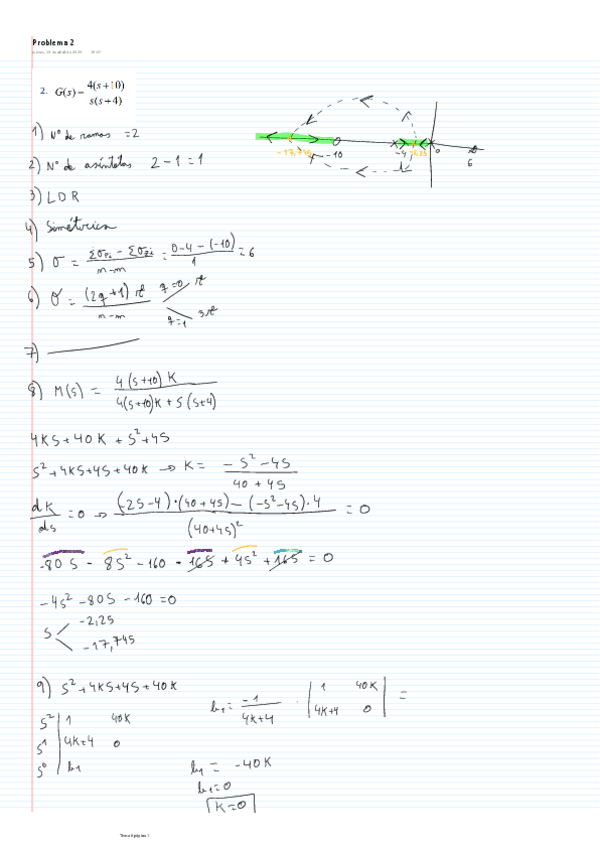 Problema 2
2. G(s) = 4(s+10) / s(s+4)
-17,745 -10 -4 -2,25 0 6
1) Nº de ramas = 2
2) Nº de asíntotas 2 - 1 = 1
3) LDR
4) Simétrica
5) σ = (Σσpi - Σσzi) / (n-m) = (0-4-(-10)) / 1 = 6
6) σ = (2q+1)π / (n-m) q=0 π
q=1 3π
7)
8) M(s) = 4(s+10)K / (4(s+10)K + s(s+4))
4KS + 40K + S² + 4S
S² + 4KS + 4S + 40K → K = (-S² - 4S) / (40 + 4S)
dK/ds = 0 → ((-2S-4)·(40+4S) - (-S²-4S)·4) / (40+4S)² = 0
-80S - 8S² - 160 - 16S + 4S² + 16S = 0
-4S² - 80S - 160 = 0
S -2,25
-17,745
9) S² + 4KS + 4S + 40K
b₁ = -1 / (4K+4) · | 1 40K | =
| 4K+4 0 |
S² | 1 40K
S¹ | 4K+4 0
S⁰ | b₁
b₁ = -40K
b₁ = 0
K = 0